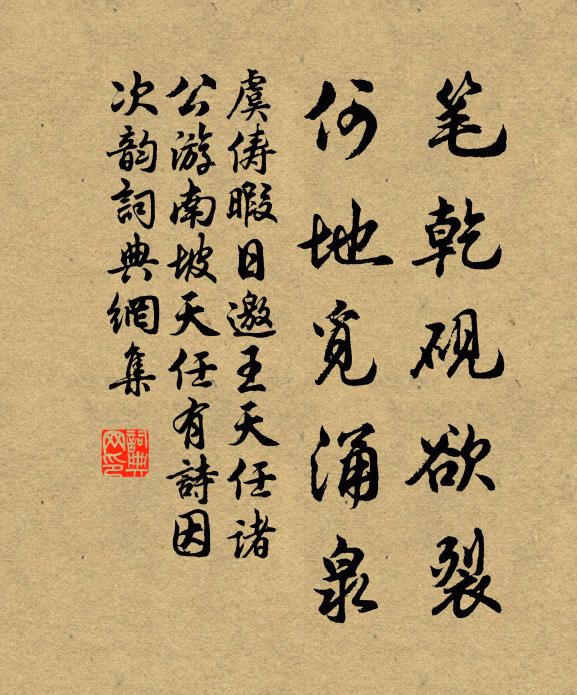 笔乾砚欲裂
何地觅涌泉
虞俦暇日邀王天任诸
公游南坡天任有詩因
次韵詞典網集
詞典
网印